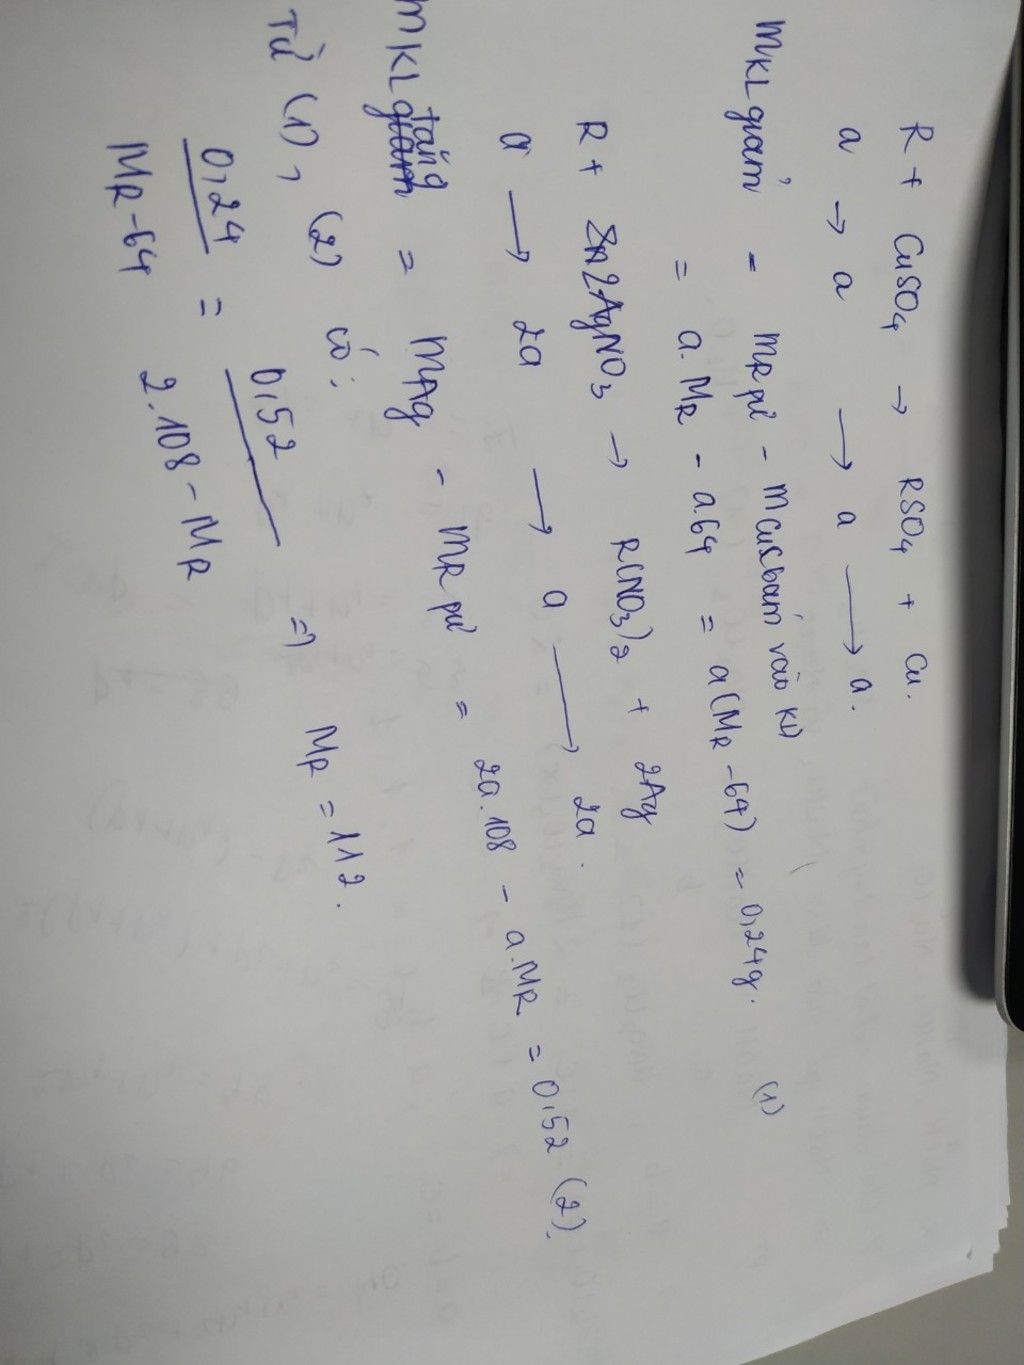 R + CuSO₄ → RSO₄ + Cu.
a → a → a → a.
mKL giảm = mR pứ - mCu(bám vào KL)
= a.MR - a.64 = a(MR - 64) = 0,24g. (1)
R + 2AgNO₃ → R(NO₃)₂ + 2Ag
a → 2a → a → 2a.
mKL tăng = mAg - mR pứ = 2a.108 - a.MR = 0,52 (2).
Từ (1), (2) có:
0,24 / MR - 64 = 0,52 / 2.108 - MR ⇒ MR = 112.